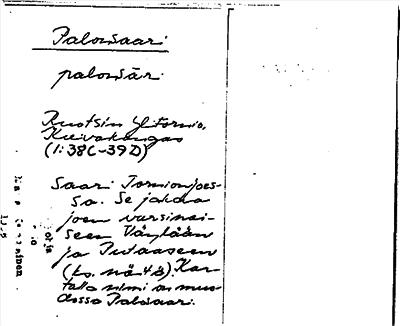 Palonsaari:
palonsār.
Ruotsin Ylitornio,
Kuivakangas
(1:38C-39D)
Saari Tornionjoes-
sa. Se jakaa
joen varsinai-
seen Väylään
ja
(ks. nä itä). Kar-
talla nimi on muo-
dossa Palosaari.